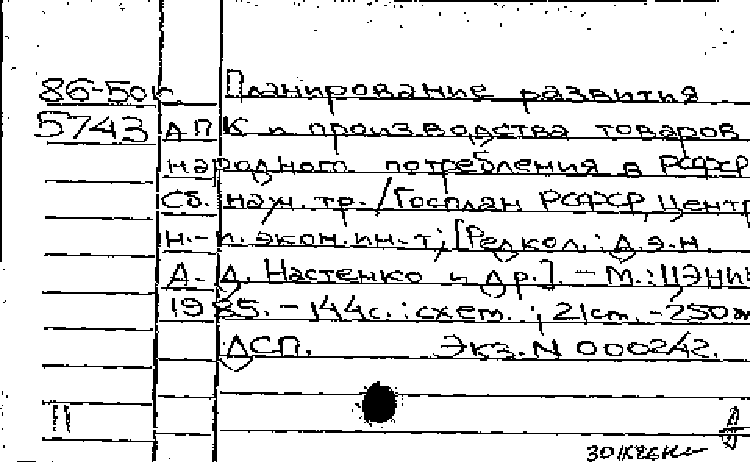 86-50к Планирование развития
5743 АПК и производства товаров
народного потребления в РСФСР
Сб. науч. тр. / Госплан РСФСР, Центр
н.-и. экон. ин-т; [Редкол.: д.э.н.
А. Д. Настенко и др.]. - М.: ЦЭНИИ
1985. - 144с. : схем. ; 21см. - 250э
ДСП. Экз. N 000242.
П